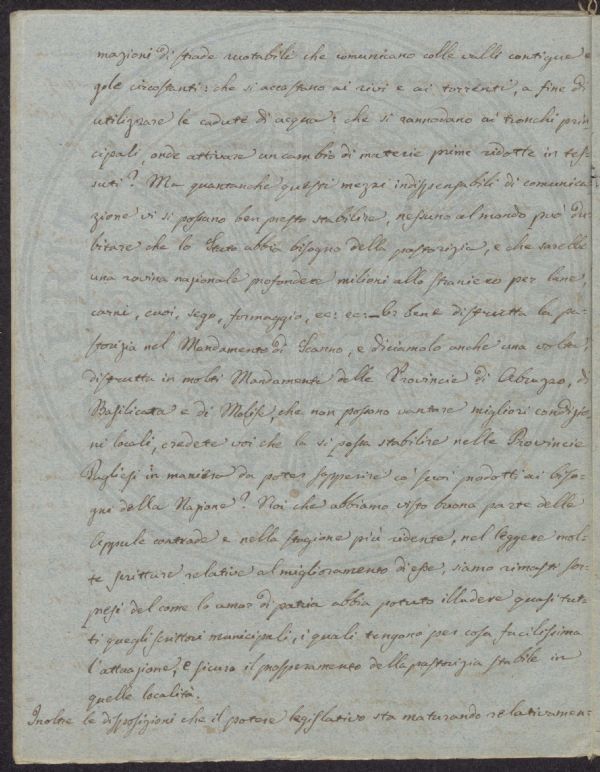 mazioni di strade ruotabili che comunicano colle valli contigue e
gole circostanti: che si accostano ai rivi e ai torrenti, a fine di
utilizzare le cadute di acqua: che si rannodano ai tronchi prin=
cipali, onde attivare un cambio di materie prime ridotte in tes=
suti? Ma quantanche questi mezzi indispensabili di comunica=
zione vi si possano ben presto stabilire, nessuno al mondo può du=
bitare che lo Stato abbia bisogno della pastorizia, e che sarebbe
una rovina nazionale profondere milioni allo straniero per lane,
carni, cuoi, sego, formaggio, ec: ec:= Or bene distrutta la pa=
storizia nel Mandamento di Scanno, e diciamolo anche una volta,
distrutta in molti Mandamenti delle Provincie di Abruzzo, di
Basilicata e di Molise, che non possono vantare migliori condizio=
ni locali, credete voi che la si possa stabilire nelle Provincie
Pugliesi in maniera da poter sopperire co' suoi prodotti ai biso=
gni della Nazione? Noi che abbiamo visto buona parte delle
Appule contrade e nella stagione più ridente, nel leggere mol=
te scritture relative al miglioramento di esse, siamo rimasti sor=
presi del come lo amor di patria abbia potuto illudere quasi tut=
ti quegli scrittori municipali, i quali tengono per cosa facilissima
l'attuazione, e sicuro il prosperamento della pastorizia stabile in
quelle località.
Inoltre le disposizioni che il potere legislativo sta maturando relativamen=